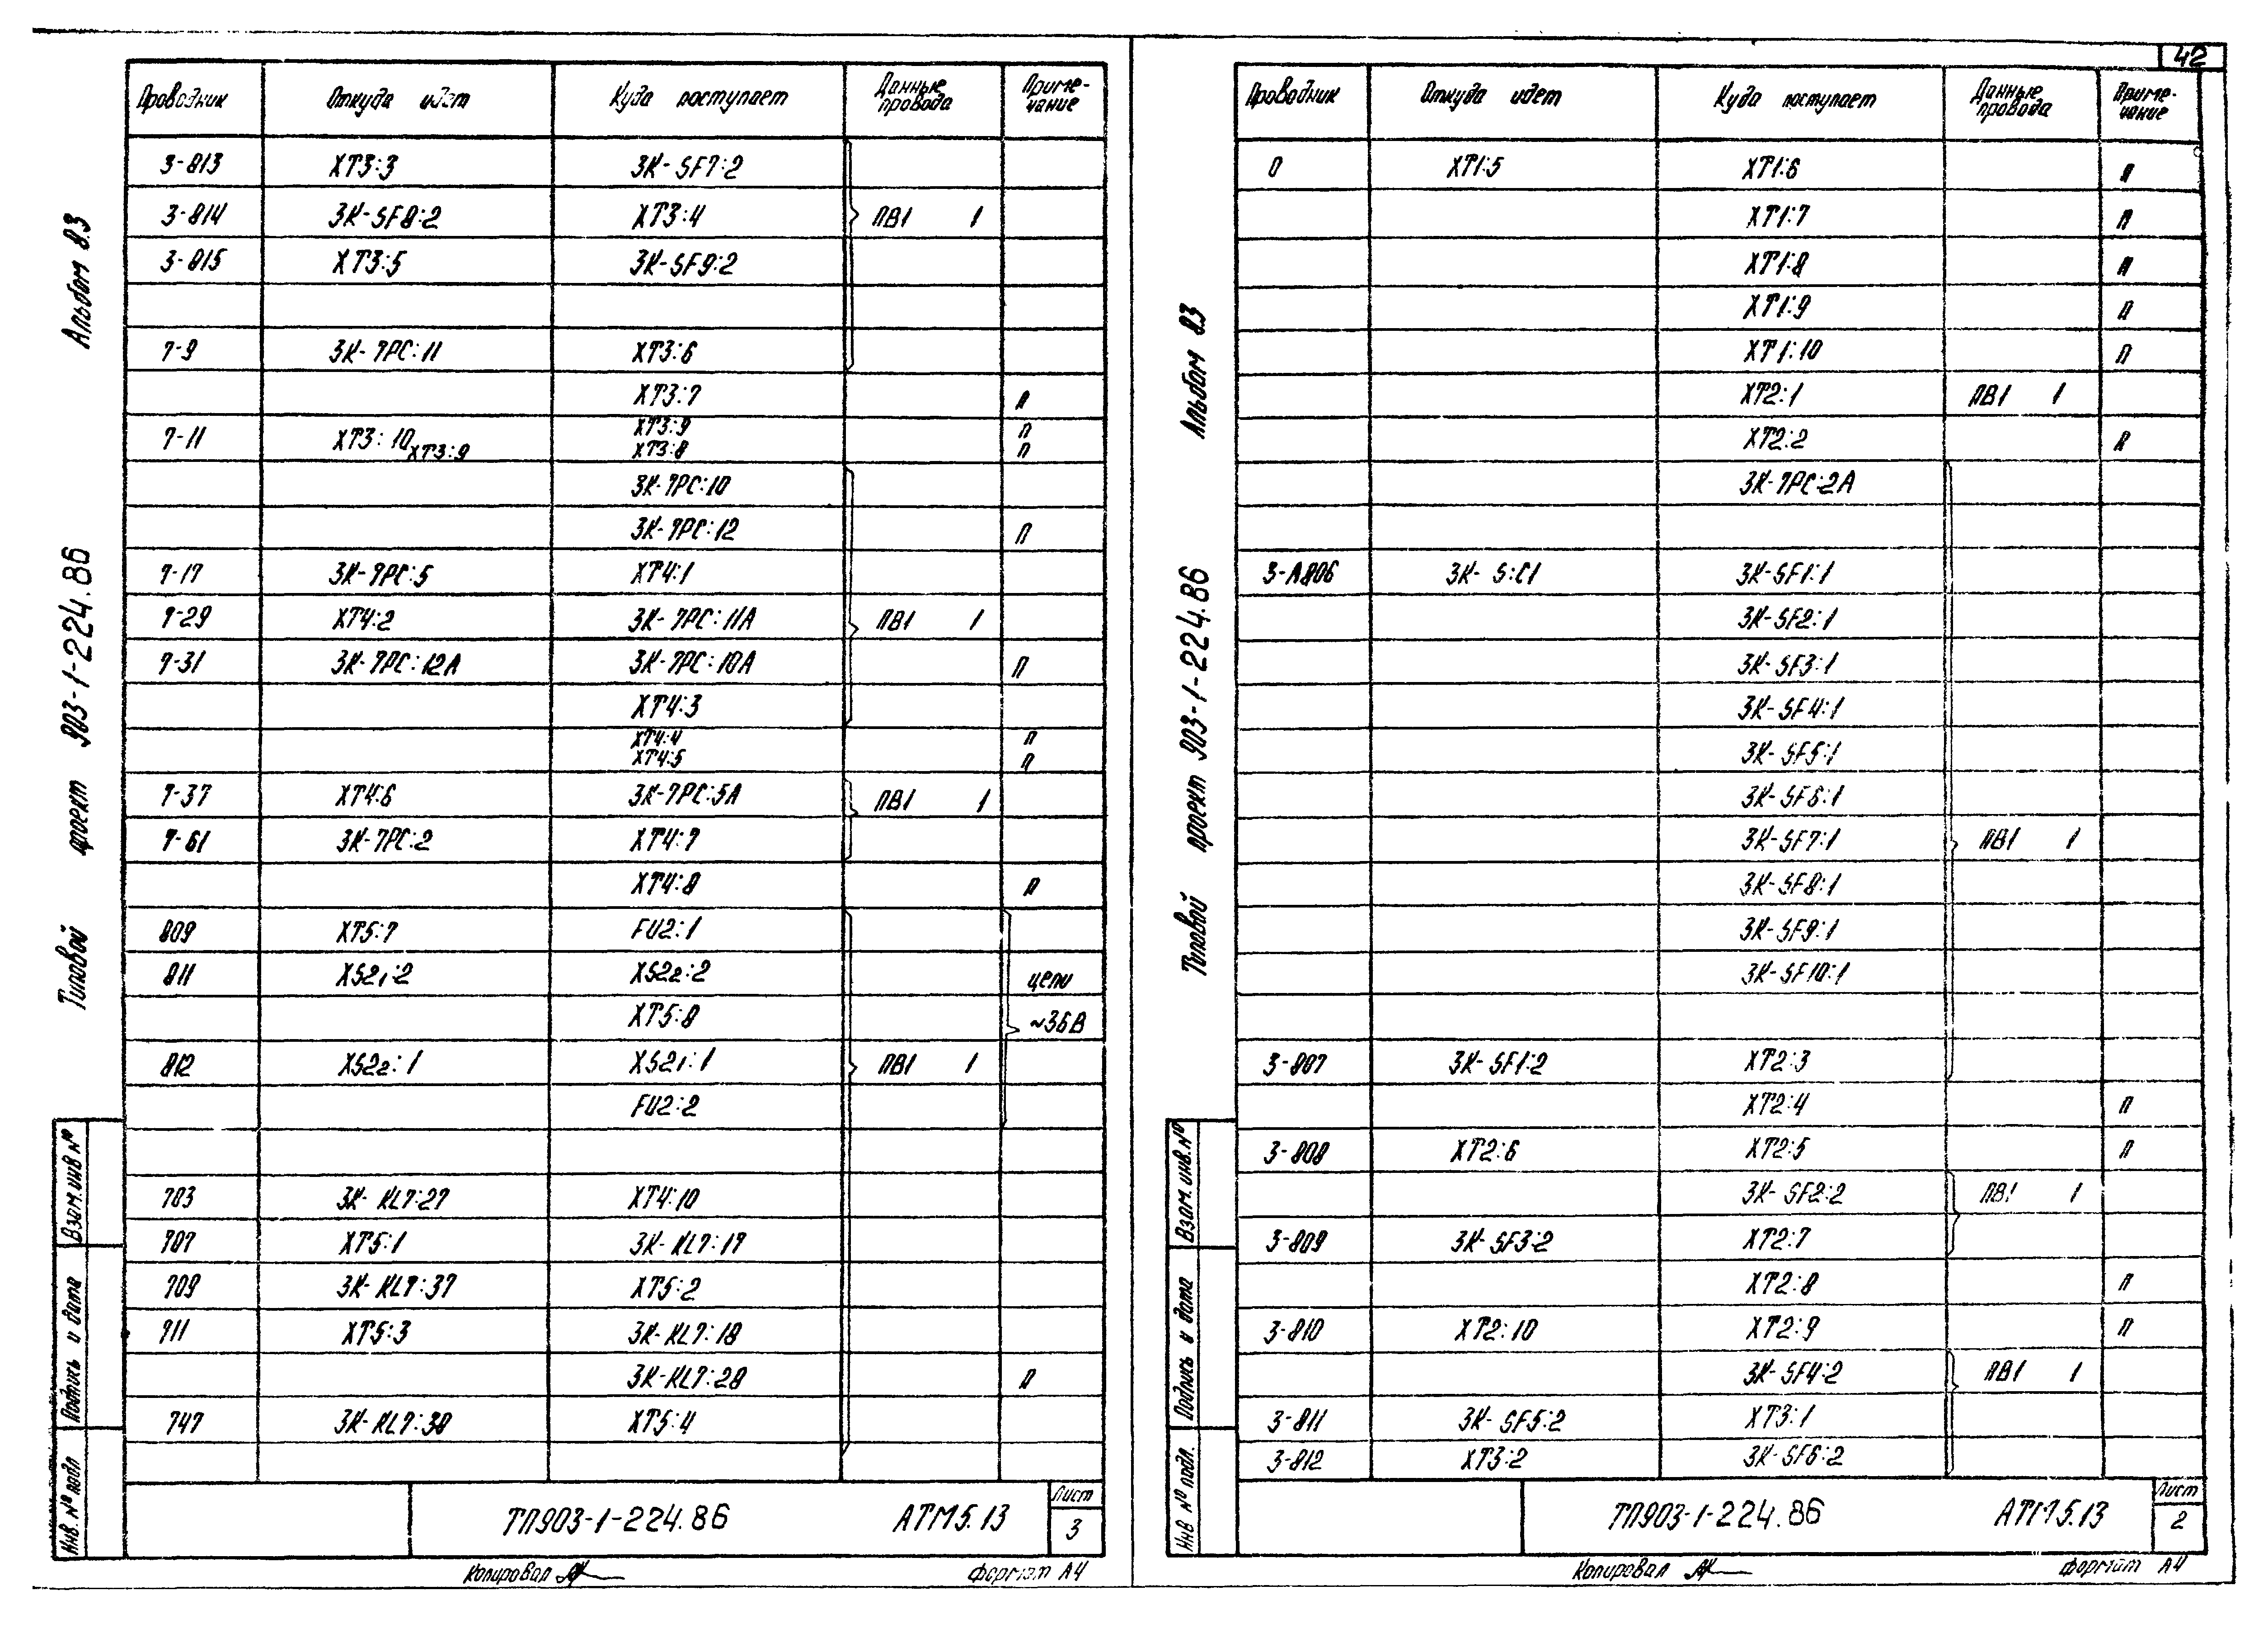 42
Альбом 8.3
Типовой проект 903-1-224.86
Взам. инв №
Подпись и дата
Инв. № подл
Проводник Откуда идет Куда поступает Данные провода Приме-чание
3-813 XT3:3 3K-SF7:2
3-814 3K-SF8:2 XT3:4 ПВ1 1
3-815 XT3:5 3K-SF9:2
7-9 3K-7PC:11 XT3:6
XT3:7 П
7-11 XT3:10 XT3:9 П
XT3:9 XT3:8 П
3K-7PC:10
3K-7PC:12 П
7-17 3K-7PC:5 XT4:1
7-29 XT4:2 3K-7PC:11A ПВ1 1
7-31 3K-7PC:12A 3K-7PC:10A П
XT4:3
XT4:4 П
XT4:5 П
7-37 XT4:6 3K-7PC:5A ПВ1 1
7-61 3K-7PC:2 XT4:7
XT4:8 П
809 XT5:7 FU2:1
811 XS21:2 XS22:2 цепи
XT5:8 ~36В
812 XS22:1 XS21:1 ПВ1 1
FU2:2
703 3K-KL7:27 XT4:10
707 XT5:1 3K-KL7:17
709 3K-KL7:37 XT5:2
711 XT5:3 3K-KL7:18
3K-KL7:28 П
747 3K-KL7:38 XT5:4
ТП903-1-224.86 АТМ5.13 Лист
3
Копировал Формат А4
Альбом 8.3
Типовой проект 903-1-224.86
Взам. инв. №
Подпись и дата
Инв № подл.
Проводник Откуда идет Куда поступает Данные провода Приме-чание
0 XT1:5 XT1:6 П
XT1:7 П
XT1:8 П
XT1:9 П
XT1:10 П
XT2:1 ПВ1 1
XT2:2 П
3K-7PC:2A
3-A806 3K-S:C1 3K-SF1:1
3K-SF2:1
3K-SF3:1
3K-SF4:1
3K-SF5:1
3K-SF6:1
3K-SF7:1 ПВ1 1
3K-SF8:1
3K-SF9:1
3K-SF10:1
3-807 3K-SF1:2 XT2:3
XT2:4 П
3-808 XT2:6 XT2:5 П
3K-SF2:2 ПВ1 1
3-809 3K-SF3:2 XT2:7
XT2:8 П
3-810 XT2:10 XT2:9 П
3K-SF4:2 ПВ1 1
3-811 3K-SF5:2 XT3:1
3-812 XT3:2 3K-SF6:2
ТП903-1-224.86 АТМ5.13 Лист
2
Копировал Формат А4